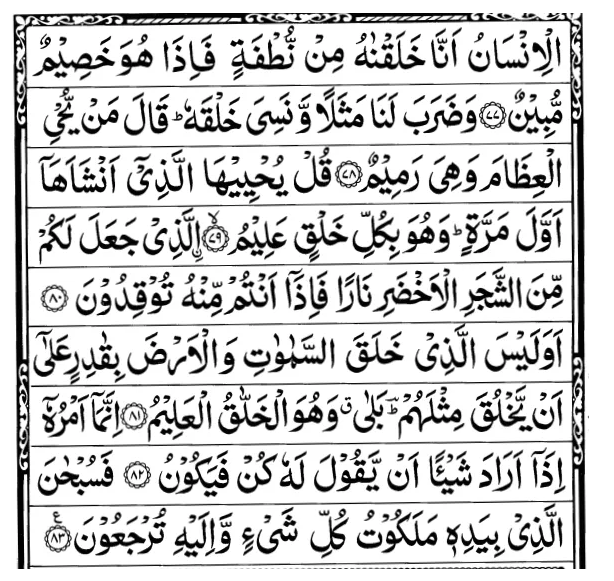 الْاِنْسَانُ اَنَّا خَلَقْنٰهُ مِنْ نُّطْفَةٍ فَاِذَا هُوَ خَصِيْمٌ
مُّبِيْنٌ ﴿۷۷﴾ وَضَرَبَ لَنَا مَثَلًا وَّ نَسِىَ خَلْقَهٗ ؕ قَالَ مَنْ يُّحْىِ
الْعِظَامَ وَهِىَ رَمِيْمٌ ﴿۷۸﴾ قُلْ يُحْيِيْهَا الَّذِىْۤ اَنْشَاَهَاۤ
اَوَّلَ مَرَّةٍ ؕ وَهُوَ بِكُلِّ خَلْقٍ عَلِيْمُ ۙ﴿۷۹﴾ اۨلَّذِىْ جَعَلَ لَكُمْ
مِّنَ الشَّجَرِ الْاَخْضَرِ نَارًا فَاِذَاۤ اَنْتُمْ مِّنْهُ تُوْقِدُوْنَ ﴿۸۰﴾
اَوَلَيْسَ الَّذِىْ خَلَقَ السَّمٰوٰتِ وَالْاَرْضَ بِقٰدِرٍ عَلٰٓى
اَنْ يَّخْلُقَ مِثْلَهُمْ ؕ بَلٰى ۗ وَهُوَ الْخَلّٰقُ الْعَلِيْمُ ﴿۸۱﴾ اِنَّمَاۤ اَمْرُهٗۤ
اِذَاۤ اَرَادَ شَيْـًٔا اَنْ يَّقُوْلَ لَهٗ كُنْ فَيَكُوْنُ ﴿۸۲﴾ فَسُبْحٰنَ
الَّذِىْ بِيَدِهٖ مَلَكُوْتُ كُلِّ شَىْءٍ وَّاِلَيْهِ تُرْجَعُوْنَ ﴿۸۳﴾ ع